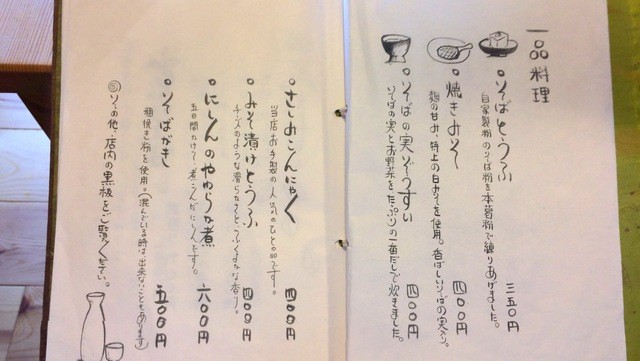 一品料理
そばとうふ 三五〇円
自家製粉のそば粉を本葛粉で練りあげました。
焼きみそ 四〇〇円
麹の甘み、特上の白みそを使用。香ばしいそばの実入り。
そばの実ぞうすい 四〇〇円
そばの実とお野菜をたっぷりの一番だしで炊きました。
さしみこんにゃく 四〇〇円
当店お手製の人気のひと品です。
みそ漬けとうふ 四〇〇円
チーズのような滑らかさとふくよかな香り。
にしんのやわらか煮 六〇〇円
五日間かけて煮こんだにしんです。
そばがき 五〇〇円
粗挽き粉を使用。(混んでいる時は、出来ないこともあります)
◎その他、店内の黒板をご覧ください。